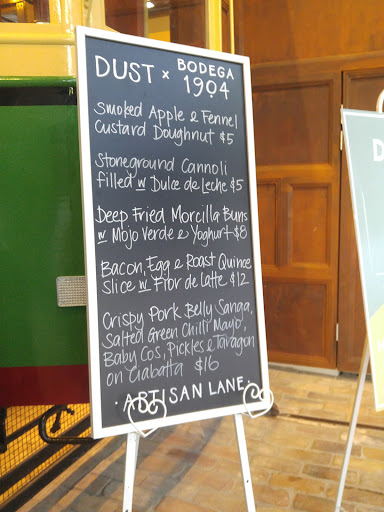 DUST x BODEGA 1904
Smoked Apple & Fennel
Custard Doughnut $5
Stoneground Cannoli
filled w Dulce de Leche $5
Deep Fried Morcilla Buns
w Mojo Verde & Yoghurt $8
Bacon, Egg & Roast Quince
slice w Fior de latte $12
Crispy Pork Belly Sanga,
Salted Green Chilli Mayo,
Baby Cos, Pickles & Taragon
on Ciabatta $16
· ARTISAN LANE ·
D